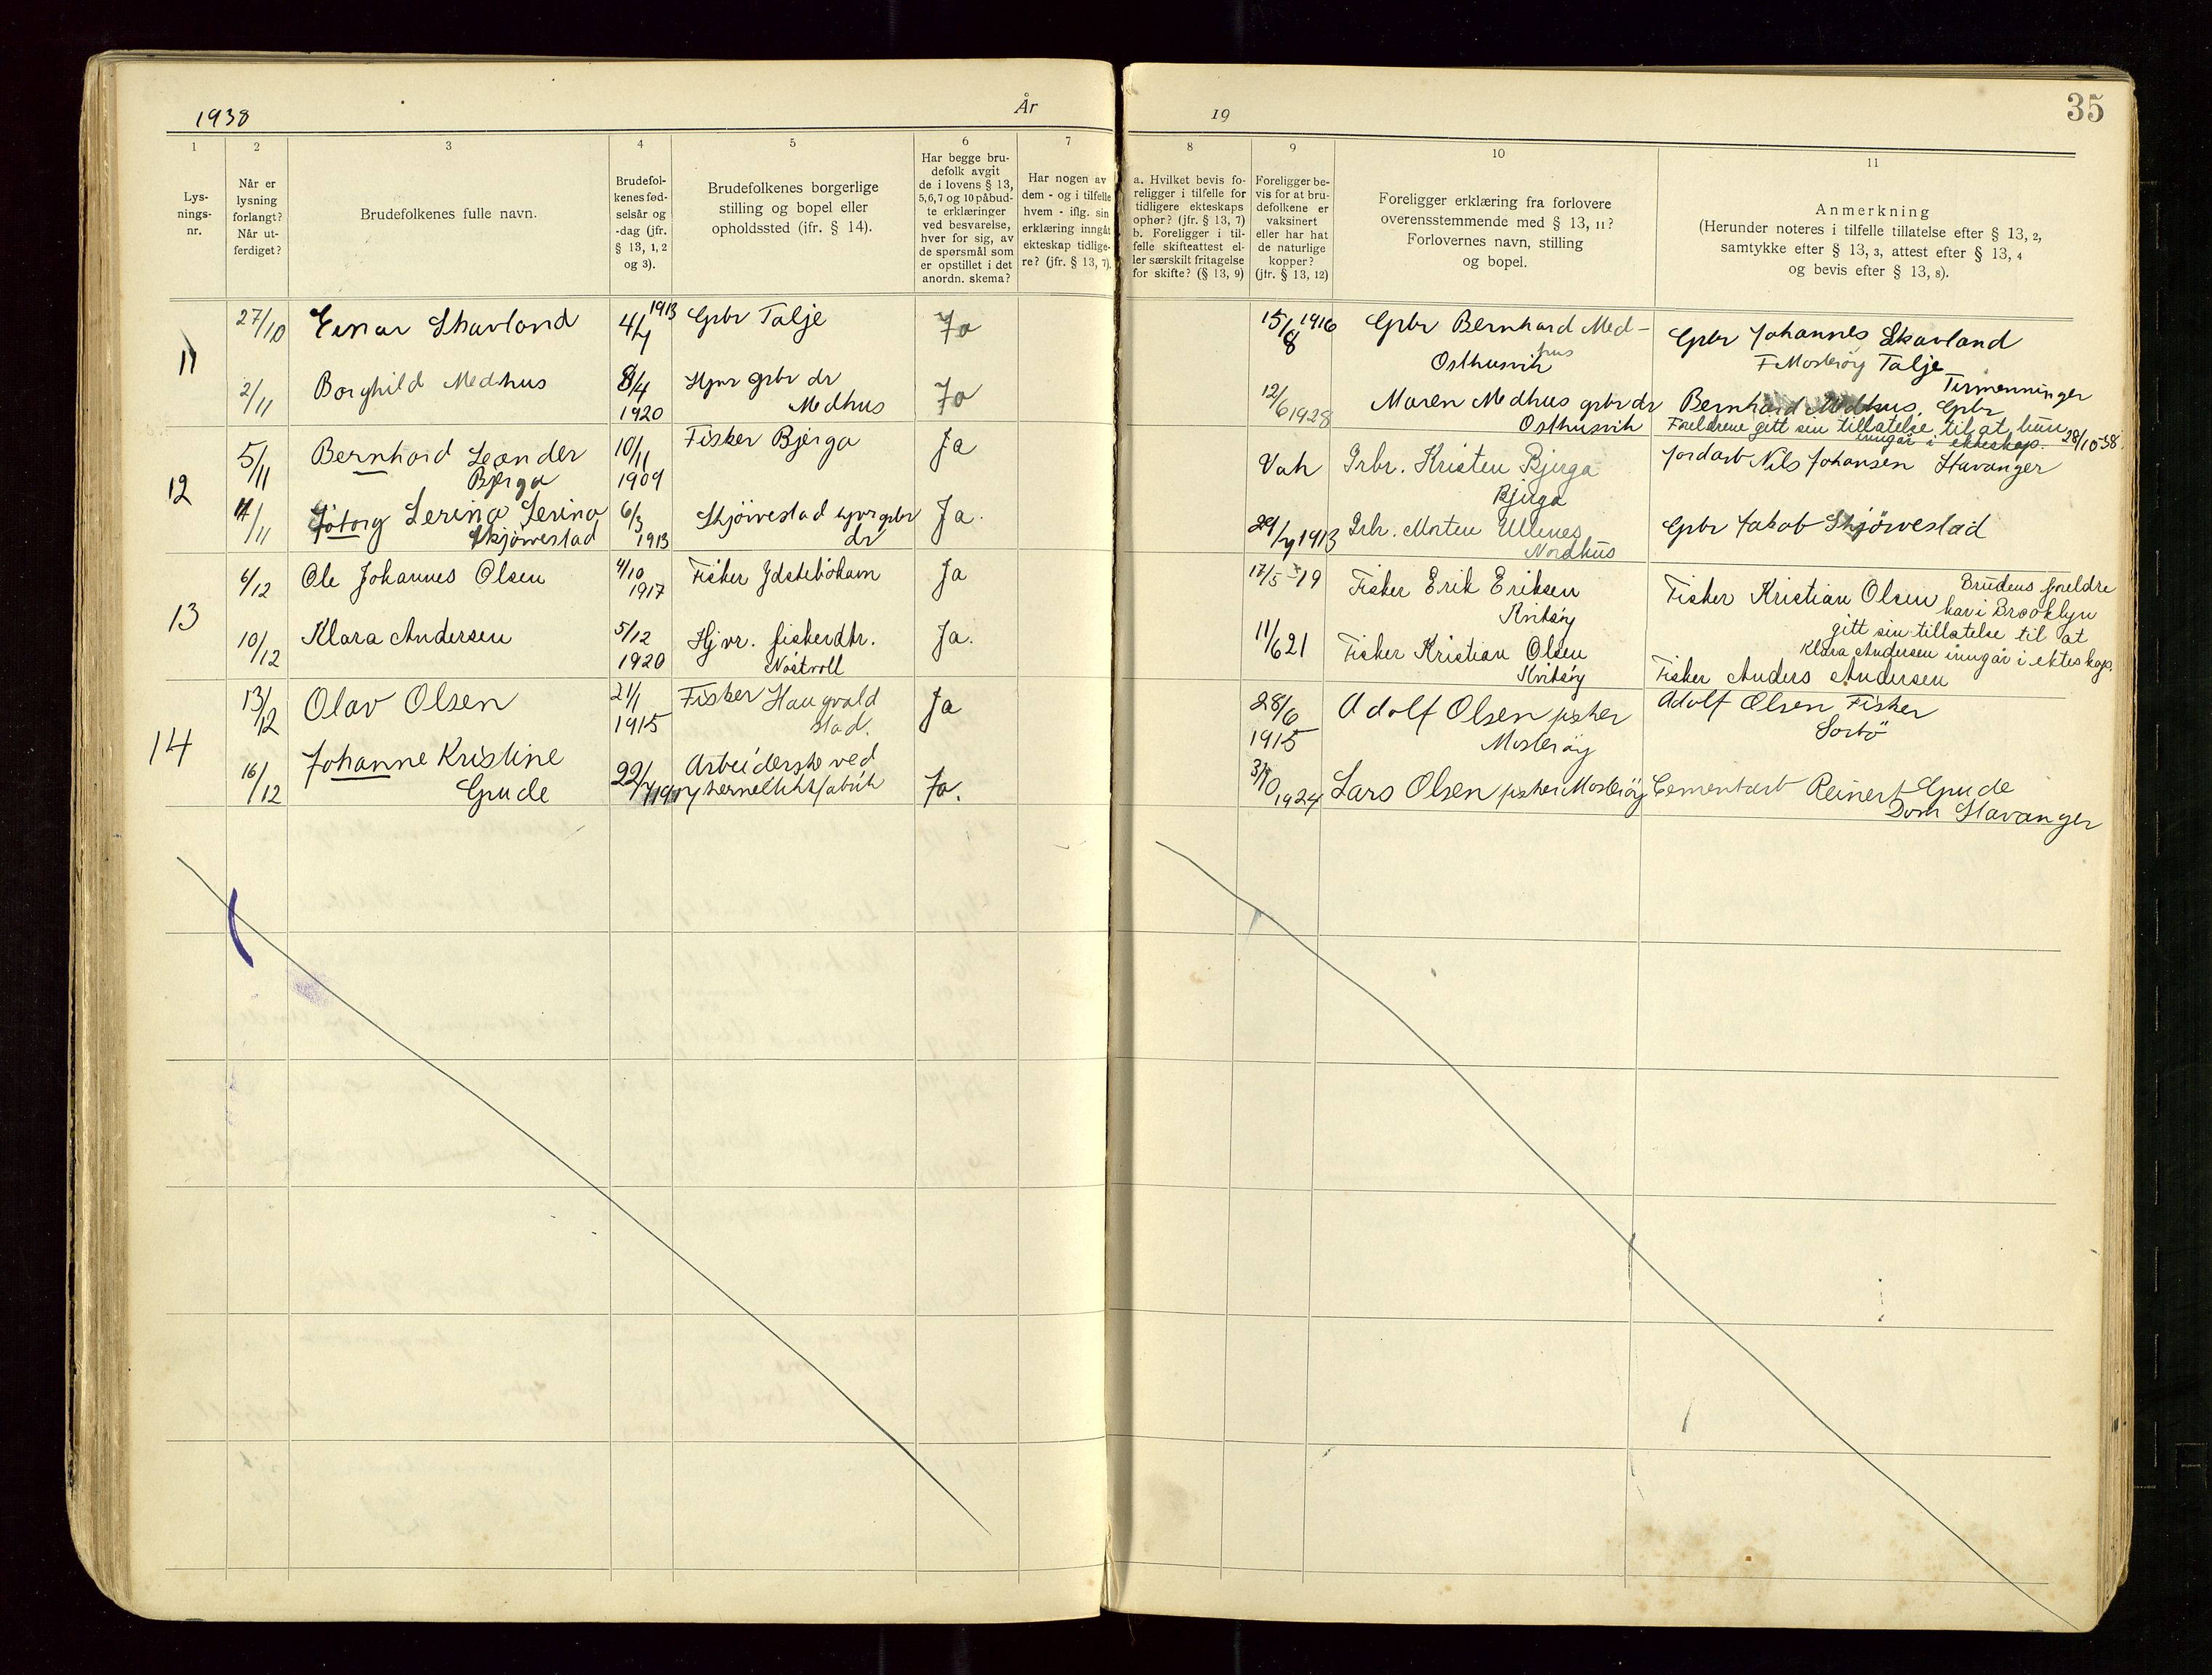 1938 År 19 35
1 2 3 4 5 6 7 8 9 10 11
Lys-
nings-
nr.
Når er
lysning
forlangt?
Når ut-
ferdiget?
Brudefolkenes fulle navn.
Brudefol-
kenes fød-
selsår og
-dag (jfr.
§ 13, 1, 2
og 3).
Brudefolkenes borgerlige
stilling og bopel eller
opholdssted (jfr. § 14).
Har begge bru-
defolk avgit
de i lovens § 13,
5,6,7 og 10 påbud-
te erklæringer
ved besvarelse,
hver for sig, av
de spørsmål som
er opstillet i det
anordn. skema?
Har nogen av
dem - og i tilfelle
hvem - iflg. sin
erklæring inngått
ekteskap tidlige-
re? (jfr. § 13, 7).
a. Hvilket bevis fo-
religger i tilfelle for
tidligere ekteskaps
ophør? (jfr. § 13, 7)
b. Foreligger i til-
felle skifteattest el-
ler særskilt fritagelse
for skifte? (§ 13, 9)
Foreligger be-
vis for at bru-
defolkene er
vaksinert
eller har hat
de naturlige
kopper?
(jfr. § 13, 12)
Foreligger erklæring fra forlovere
overensstemmende med § 13, 11?
Forlovernes navn, stilling
og bopel.
Anmerkning
(Herunder noteres i tilfelle tillatelse efter § 13, 2,
samtykke efter § 13, 3, attest efter § 13, 4
og bevis efter § 13, 8).
11
27/10 Einar Skavland 4/7 1913 Gpbr Talje Ja
15/8 1916 Gpbr Bernhard Med-
hus
Osthusvik
Gpbr Johannes Skavland
F Mosterøy Talje
2/11 Borghild Medhus 8/4
1920
Hjvr gpbr dr
Medhus
Ja
12/6 1928 Maren Medhus gpbr dr
Osthusvik
Tirmenninger
Bernhard Medhus, Gpbr
Foreldrene gitt sin tillatelse til at hun
inngår i ekteskap. 28/10-38.
12
5/11 Bernhard Leander
Bjerga
10/11
1909
Fisker Bjerga Ja
Vak Grbr. Kristen Bjerga
Bjerga
Jordarb Nils Johansen Stavanger
11/11 Serina Serina
Skjørvestad
6/3
1913
Skjørvestad hjvr gpbr
dr
Ja.
29/7 1913 Grbr. Morten Ullenes
Nordhus
Gpbr Jakob Skjørvestad
13
6/12 Ole Johannes Olsen 4/10
1917
Fisker Ydstebøhavn Ja
17/5-19 Fisker Erik Eriksen
Kvitsøy
Fisker Kristian Olsen
Brudens foreldre
har i Brooklyn
gitt sin tillatelse til at
Klara Andersen inngår i ekteskap.
10/12 Klara Andersen 5/12
1920
Hjvr. fiskerdtr.
Nøstvoll
Ja.
11/6 21 Fisker Kristian Olsen
Kvitsøy
Fisker Anders Andersen
14
13/12 Olav Olsen 21/1
1915
Fisker Haugvald
stad.
Ja
28/6
1915
Adolf Olsen fisker
Mosterøy
Adolf Olsen Fisker
Sørbö
16/12 Johanne Kristine
Gude
22/7 1917
Arbeiderske ved
hermetikkfabrik
Ja.
31/10
1924
Lars Olsen fisker Mosterøy
Cementarb Reinert Gude
Dom Stavanger